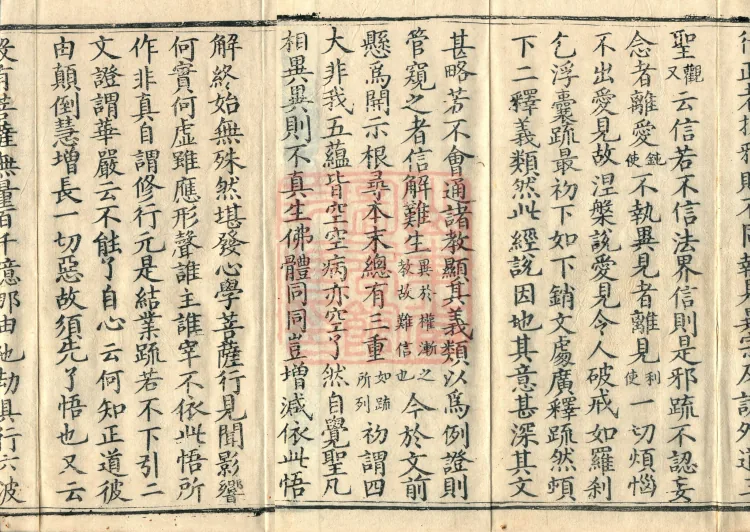 聖觀又云信若不信法界信則是邪疏不認妄
念者離愛鈍使不執異見者離見利使一切煩惱
不出愛見故涅槃說愛見令人破戒如羅刹
乞浮囊疏最初下如下銷文處廣釋疏然頓
下二釋義類然此經說因地其意甚深其文
甚略若不會通諸教顯其義類以爲例證則
管窺之者信解難生異於權漸之教故難信也今於文前
懸爲開示根尋本末總有三重如疏所列初謂四
大非我五蘊皆空空病亦空了然自覺聖凡
相異異則不真生佛體同同豈增減依此悟
解終始無殊然堪發心學菩薩行見聞影響
何實何虛雖應形聲誰主誰宰不依此悟所
作非真自謂修行元是結業疏若不下引二
文證謂華嚴云不能了自心云何知正道彼
由顛倒慧增長一切惡故須先了悟也又云
有菩薩無量百千億那由他劫具行六波